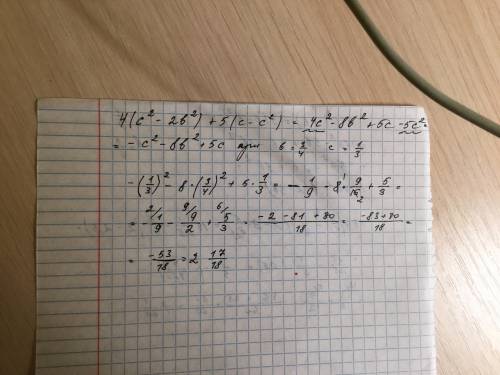 4(c² - 2b²) + 5(c - c²) = 4c² - 8b² + 5c - 5c² =
= - c² - 8b² + 5c при b = 3/4 c = 1/3
-(1/3)² - 8·(3/4)² + 5·1/3 = - 1/9 - 8·9/16 + 5/3 =
= - 1/9 - 9/2 + 5/3 = -2 -81 +30/18 = -83+30/18 =
= -53/18 = 2 17/18